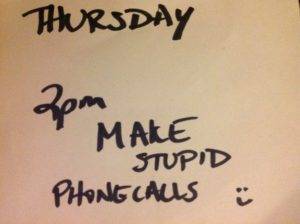 THURSDAY
2pm
MAKE
STUPID
PHONE CALLS :)